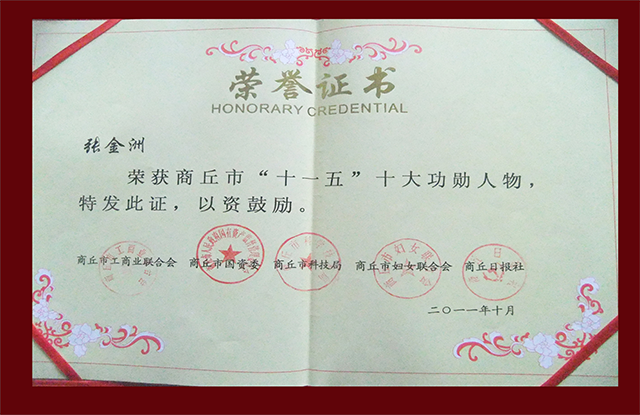 荣誉证书
HONORARY CREDENTIAL
张金洲
荣获商丘市“十一五”十大功勋人物，
特发此证，以资鼓励。
商丘市工商业联合会 商丘市国资委 商丘市科技局 商丘市妇女联合会 商丘日报社
二〇一一年十月